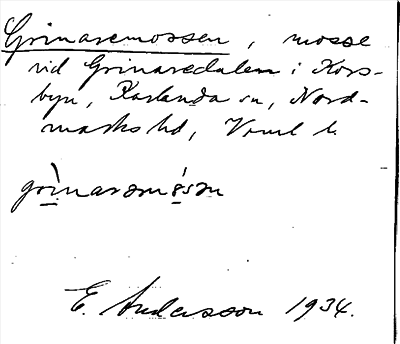 Grinaremossen, mosse
vid Grinaredalen i Kors-
byn, Karlanda sn, Nord-
marks hd, Vrml l.
grìnarəmósən
E. Andersson 1934.